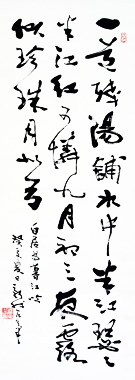 一道残陽鋪水中半江瑟々
半江红可憐九月初三夜露
似珍珠月似弓
白居易暮江吟